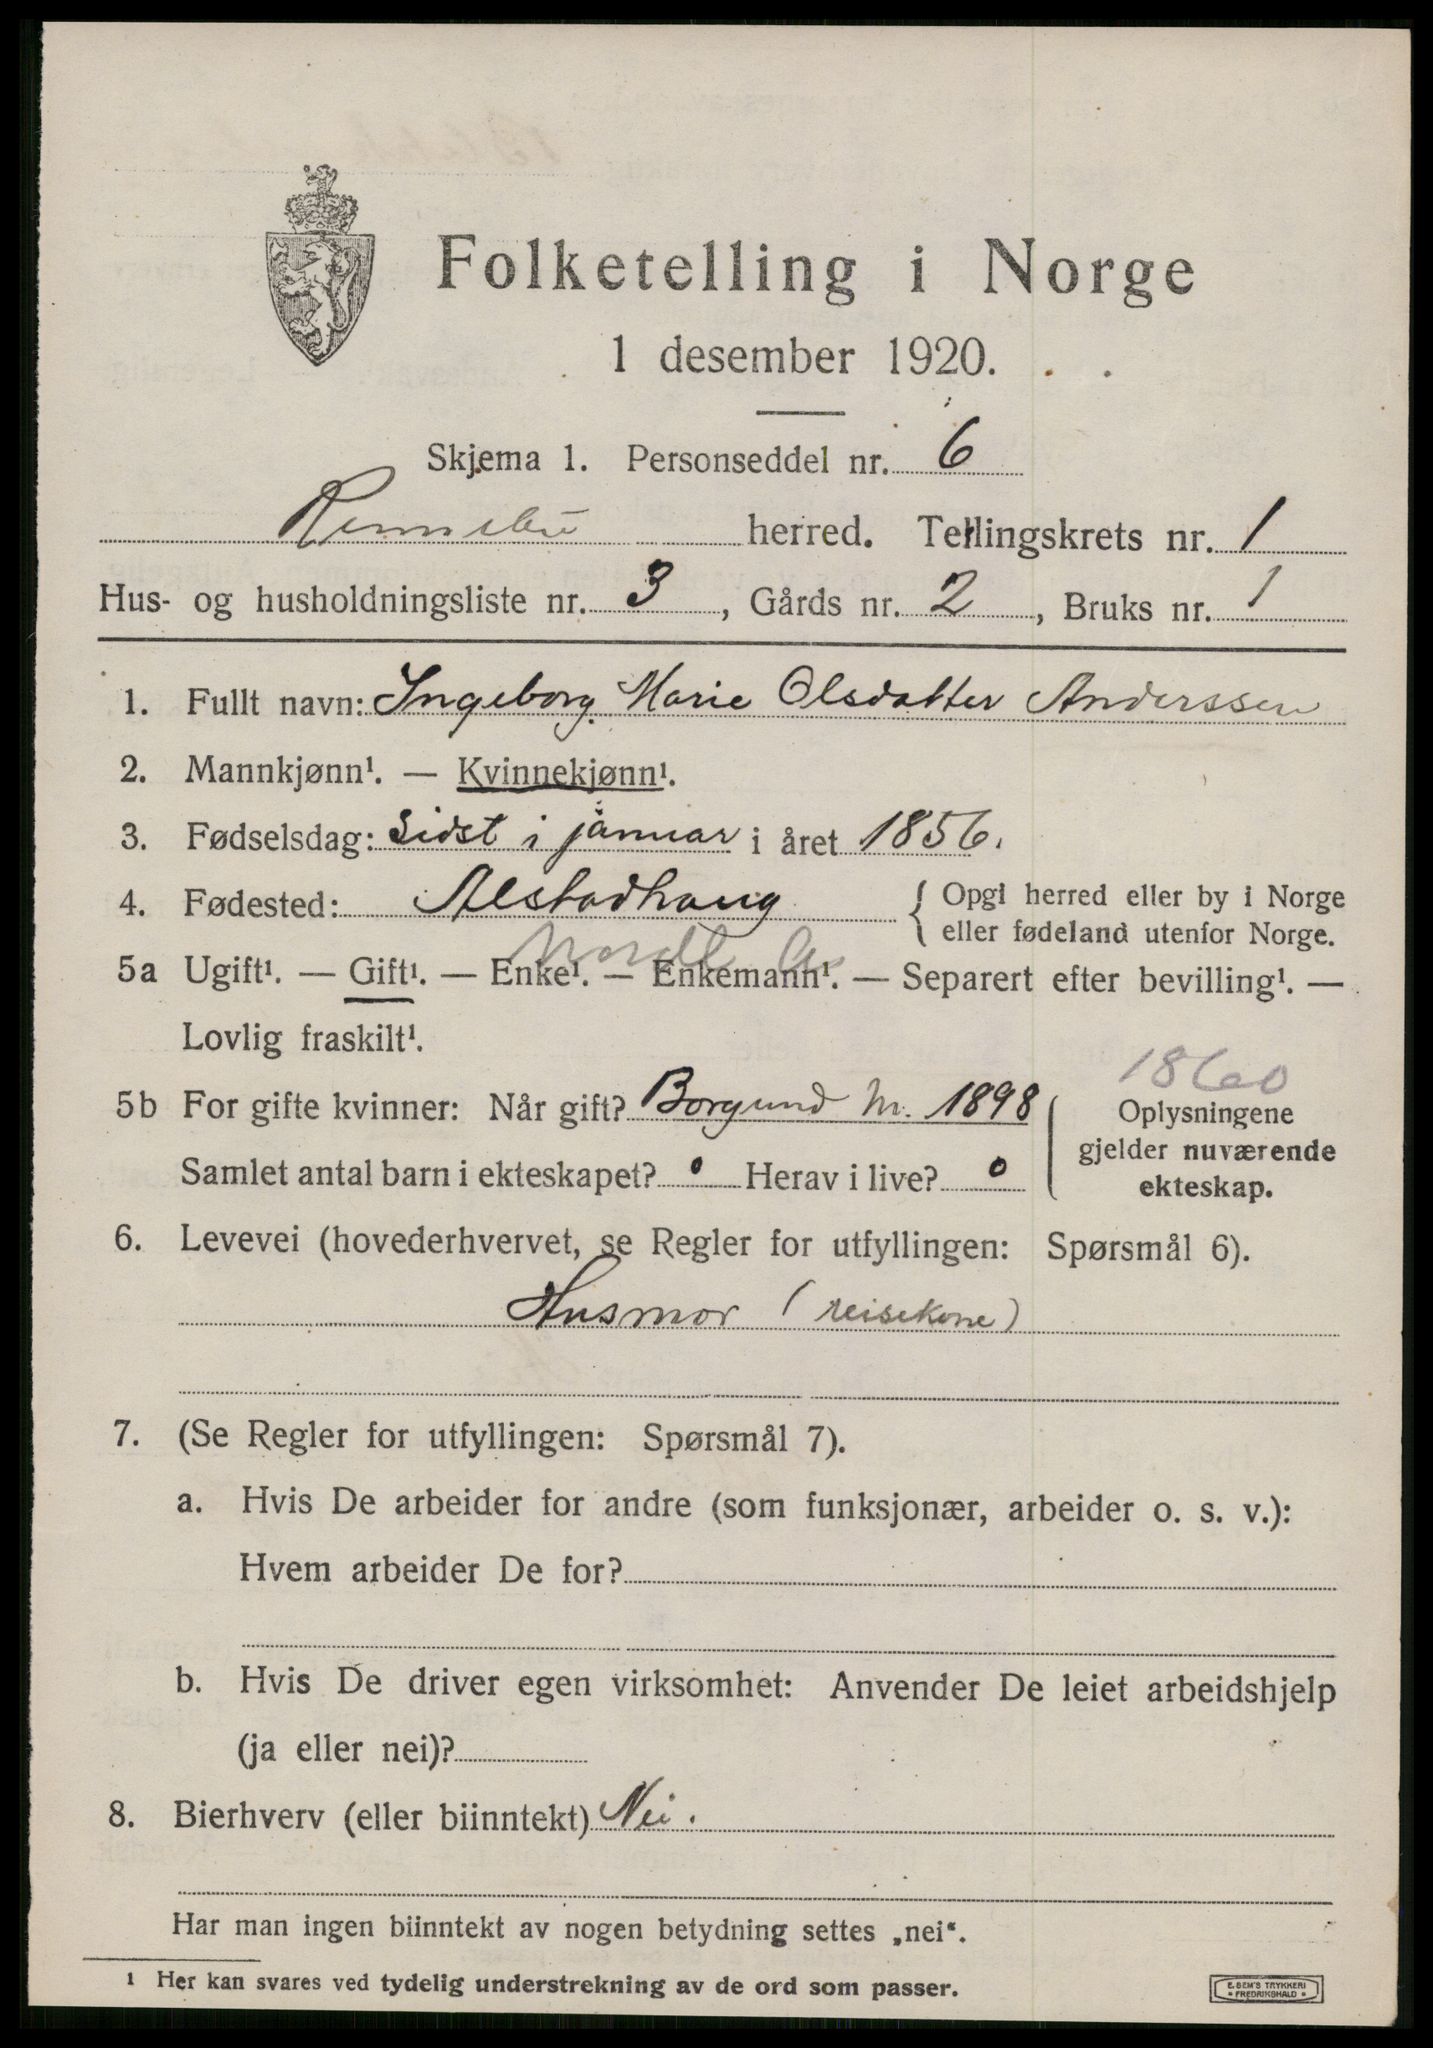 Folketelling i Norge
1 desember 1920.
Skjema 1. Personseddel nr. 6
Rennebu herred. Tellingskrets nr. 1
Hus- og husholdningsliste nr. 3, Gårds nr. 2, Bruks nr. 1
1. Fullt navn: Ingeborg Marie Olsdatter Anderssen
2. Mannkjønn¹. — Kvinnekjønn¹.
3. Fødselsdag: Sidst i januar i året 1856.
4. Fødested: Alstadhaug { Opgi herred eller by i Norge
eller fødeland utenfor Norge.
Nordl. a.
5a Ugift¹. — Gift¹. — Enke¹. — Enkemann¹. — Separert efter bevilling¹. —
Lovlig fraskilt¹.
1860
5b For gifte kvinner: Når gift? Borgund M. 1898 Oplysningene
gjelder nuværende
Samlet antal barn i ekteskapet? 0 Herav i live? 0 ekteskap.
6. Levevei (hovederhvervet, se Regler for utfyllingen: Spørsmål 6).
Husmor (reisekone)
7. (Se Regler for utfyllingen: Spørsmål 7).
a. Hvis De arbeider for andre (som funksjonær, arbeider o. s. v.):
Hvem arbeider De for?
b. Hvis De driver egen virksomhet: Anvender De leiet arbeidshjelp
(ja eller nei)?
8. Bierhverv (eller biinntekt) Nei.
Har man ingen biinntekt av nogen betydning settes „nei“.
1 Her kan svares ved tydelig understrekning av de ord som passer.
E. SEM'S TRYKKERI
• FREDRIKSHALD •